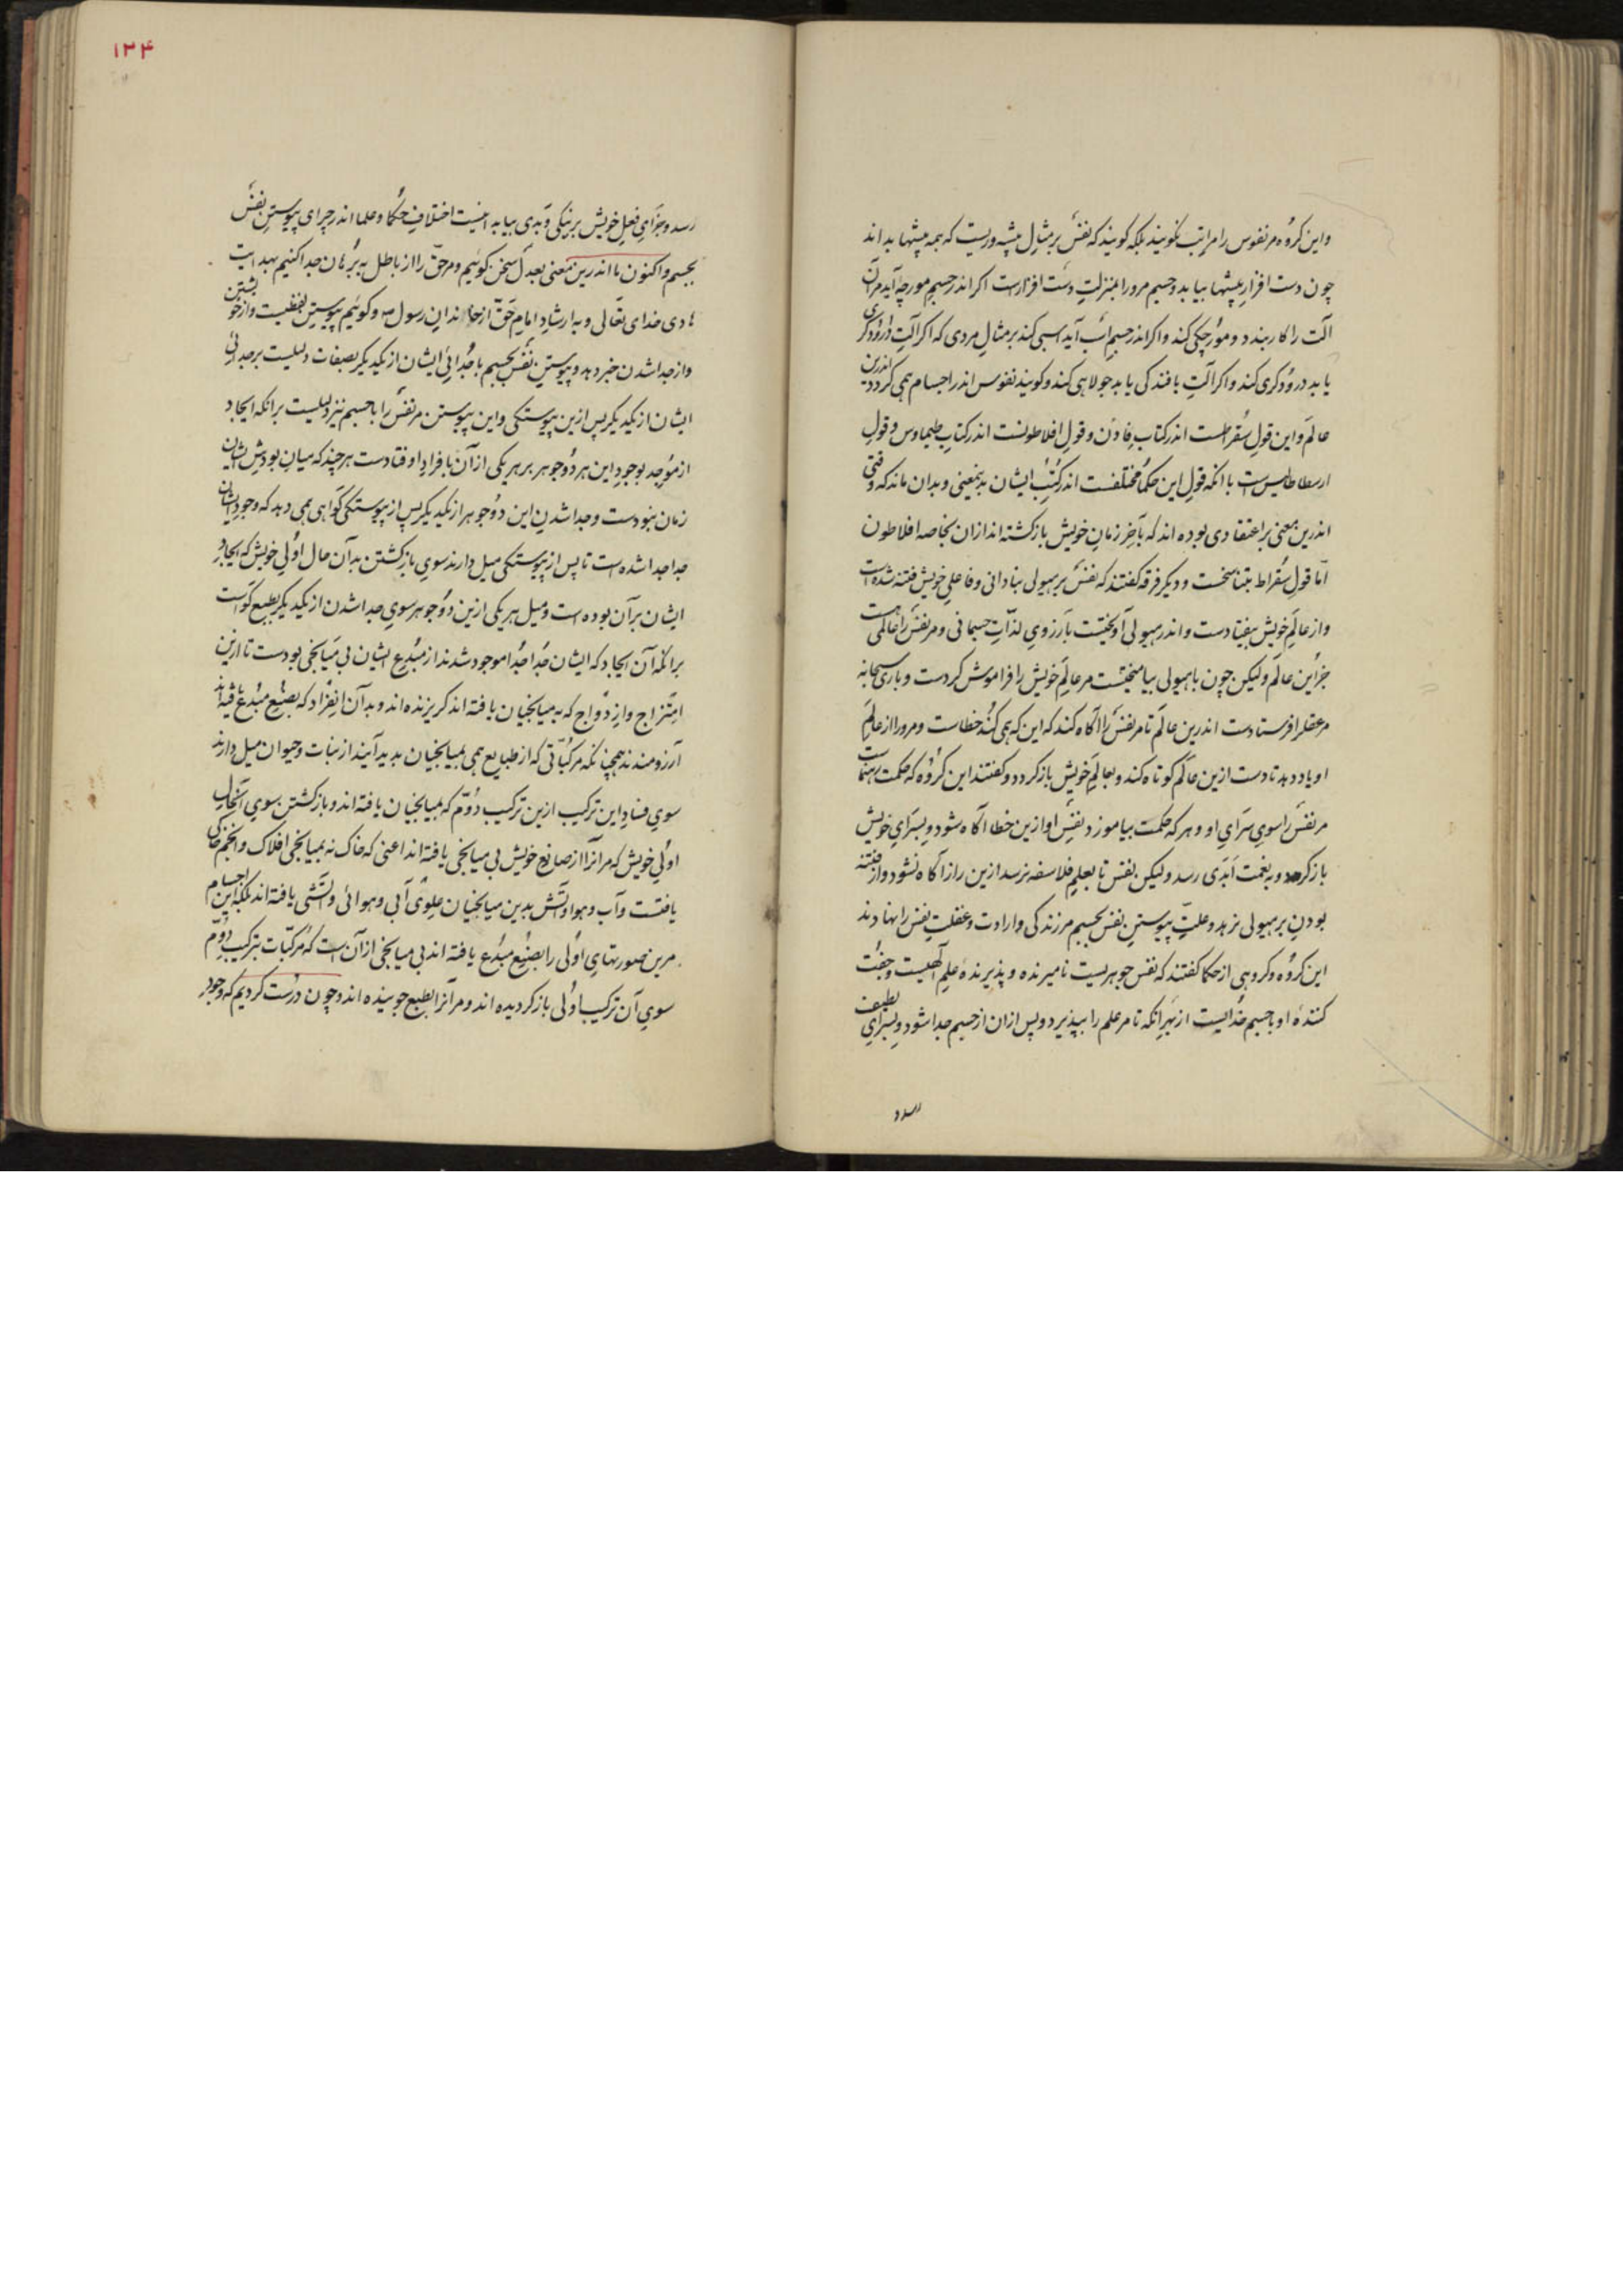 واین کروه مر نفوس را مراتب نکویند بلکه کویند که نفس بر مثال پیشه وریست که همه پیشها بداند
چون دست افزار پیشها بیابد وجسم مرورا بمنزلت دست افزارست اکر اندر جسم مورچه آید مر آن
آلت را کار بندد و مورچکی کند واکر اندر جسم اسب آید اسبی کند بر مثال مردی که اکر آلت درودکری
یابد درودکری کند واکر آلت بافندکی یابد جولاهی کند وکویند نفوس اندر اجسام همی کردد اندرین
عالم واین قول سقراطست اندر کتاب فادن وقول افلاطونست اندر کتاب طیماوس وقول
ارسطاطالیس است با آنکه قول این حکما مختلفست اندر کتب ایشان بدینمعنی وبدان ماند که وقتی
اندرین معنی بر اعتقادی بوده اند که بآخر زمان خویش باز کشته اند ازان بخاصه افلاطون
اما قول سقراط بتناسخست ودیکر فرقه کفتند که نفس بر هیولی بنادانی وفاعلی خویش فتنه شده است
واز عالم خویش بیفتادست واندر هیولی آویختست بآرزوی لذات جسمانی ومر نفس را عالمی هست
جز این عالم ولیکن چون با هیولی بیامیختست مر عالم خویش را فراموش کردست وباری سبحانه
مر عقل را فرستادست اندرین عالم تا مر نفس را آکاه کند که این که همی کند خطاست ومرورا از عالم
او یاد دهد تا دست ازین عالم کوتاه کند وبعالم خویش باز کردد وکفتند این کروه که حکمت رهنماست
مر نفس را سوی سرای او وهر که حکمت بیاموزد نفس او ازین خطا آکاه شود وبسرای خویش
باز کردد وبه نعمت ابدی رسد ولیکن نفس تا بعلم فلاسفه نرسد ازین راز آکاه نشود واز فتنه
بودن بر هیولی نرهد وعلت پیوستن نفس بجسم مر زندکی وارادت وغفلت نفس را نهادند
این کروه وکروهی از حکما کفتند که نفس جوهریست نامیرنده وپذیرنده علم آلهیست وجفت
کننده او با جسم خدایست از بهر آنکه تا مر علم را بپذیرد وپس ازان از جسم جدا شود وبسرای لطیف
رسد و
۱۳۴
رسد وجزای فعل خویش بر نیکی وبدی بیابد اینست اختلاف حکما وعلما اندر چرای پیوستن نفس
بجسم واکنون ما اندرین معنی بعدل سخن کوئیم ومر حق را از باطل به برهان جدا کنیم بهدایت
هادی خدای تعالی وبه ارشاد امام حق از خاندان رسول ص وکوئیم پیوستن لفظیست واز خویشتن
واز جدا شدن خبر دهد وپیوستن نفس بجسم با جدائی ایشان از یکدیکر بصفات دلیلست بر جدائی
ایشان از یکدیکر پس ازین پیوستکی واین پیوستن مر نفس را با جسم نیز دلیلست بر انکه ایجاد
از موجد بوجود این هر دو جوهر بر هر یکی از آن بافراد اوفتادست هر چند که میان بودش ایشان
زمان نبودست وجدا شدن این دو جوهر از یکدیکر پس از پیوستکی کواهی همی دهد که وجود ایشان
جدا جدا شده است تا پس از پیوستکی میل دارند سوی باز کشتن بدان حال اولی خویش که ایجاد
ایشان بر آن بوده است ومیل هر یکی ازین دو جوهر سوی جدا شدن از یکدیکر بطبع کواست
بر انکه آن ایجاد که ایشان جدا جدا موجود شدند از مبدع ایشان بی میانجی بودست تا ازین
امتزاج وازدواج که به میانجیان یافته اند کریزنده اند وبدان انفراد که بصنع مبدع یافته اند
آرزومندند همچنانکه مرکباتی که از طبایع همی بمیانجیان بدید آیند از نبات وحیوان میل دارند
سوی فساد این ترکیب ازین ترکیب دوم که بمیانجیان یافته اند وباز کشتن بسوی آنحال
اولی خویش که مر آنرا از صانع خویش بی میانجی یافته اند اعنی که خاک نه بمیانجی افلاک وانجم خاکی
یافتست وآب وهوا وآتش بدین میانجیان علوی آبی وهوائی وآتشی یافته اند بلکه این اجسام
مرین صورتهای اولی را بصنع مبدع یافته اند بی میانجی از آن است که مرکبات بترکیب دوم
سوی آن ترکیب اولی باز کردیده اند ومر آنرا بطبع جوینده اند وچون درست کردیم که وجود